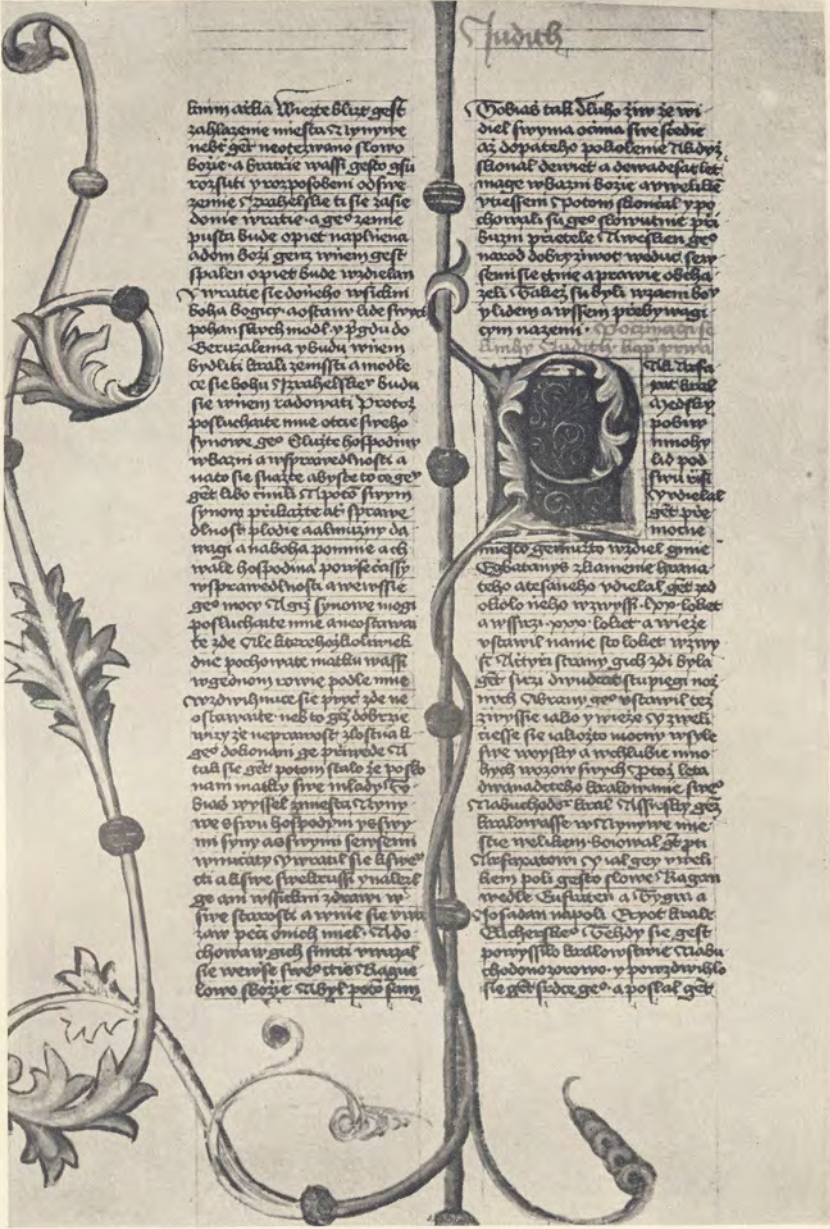 Judith
knim arka Wierte blizt gest
zahlazenie miesta Nynywe
nebt get neotezwano slowo
bozie · a bratrie wassi gesto gsu
rozsuti y rozposobeni od swe
zemie Izrahelske ti sie zasie
donie wratie · a geo zemie
pusta bude opiet naplnena
a dom bozi genz wniem gest
spalen opiet bude wzdielan
Y wratie sie doneho wsickni
boha bogici · a ostawi lide swych
pohanskych modl · y pgdu do
Geruzalema y budu wniem
bydliti krali zemssti a modle
ce sie bohu Izrahelske budu
sie wniem radowati Protoz
posluchaite mne otcie sweho
synowe geo Sluzte hospodinu
wbazni a wsprawedlnosti a
nato sie snazte abyste to coz
get libo cinili A poto swym
synom prikazte at sprawe
dlnost plodie a almuzny da
wagi a naboha pomnie a ch
wale hospodina powse casy
wsprawedlnosti a wewssie
geo mocy A giz synowe mogi
posluchaite mne a neostawai
te zde Ale kterehozkoliwiek
dne pochowate matku wassi
wgednom rowie podle mne
wzdwihnuce sie pryc zde ne
ostawaite · neb to giz dobrzie
wizi ze neprawost zlostna k
geo dokonani ge priwede A
tak sie get potom stalo ze posko
nani matky swe mlady To
bias wyssel zmiesta Nyny
we s swu hospodyni y s swy
mi syny a s swymi
wnucaty y wratil sie k swe
cti a k swe swekrussi y nalezl
ge am wssickni zdrawi w
swe starosti a wnie sie
zaw peci o nich miel · A do
chowaw gich smrti
sie wewse sweo ctie Rague
lowo sbozie A byl poto sam
Tobias tak dluho ziw ze wi
diel swyma ocima swe scedie
az dopateho pokolenie A kdyz
skonal dewiet a dewadesat let
mage wbazni bozie a wwelike
vtiessen Y potom skoncal y po
chowali su geo slowutnie pri
buzni prietele A wesken geo
narod dobry ziwot weduc sew
stim sie ctnie a prawie obcha
zeli Takez su byli wzacni boh
y lidem a wssem prebywagi
cym nazemi · Pocinagi se
knihy Judith kap prwa
Tak Arfa
xat kral
Medsky
pobiw
mnohy
lid pod
swu risi
Y vdielal
get pre
mocne
miesto gemuzto wzdiel gmie
Egbatanys z kamenie hrana
teho a tesaneho vdielal get zed
okolo neho wzwyssi · lxx · loket
a wssirzi · xxx · loket a wieze
vstawil nanie sto loket wzwy
si A ctyri strany gich zdi byla
get sirzi dwudcat stupiegi noz
nych A brany geo vstawil tez
zwyssie iako y wieze Y zweli
ciesse sie iakozto mocny wsyle
swe woysky a wchlubie mno
hych wozow swych Protoz leta
dwanadcteho kralowanie sweo
Nabuchodor kral Assirsky genz
kralowasse w Nynywe mie
stie welikem bojowal get pti
Arfaxatowi Y ial gey w weli
kem poli gesto slowe Ragan
wedle Eufraten a Tygrin a
Josadan napoli Eryot krale
Elicherskeo Tehdy sie gest
powyssilo kralowstwie Nabu
chodonozorowo · y powzdwihlo
sie get srdce geo · a poslal get